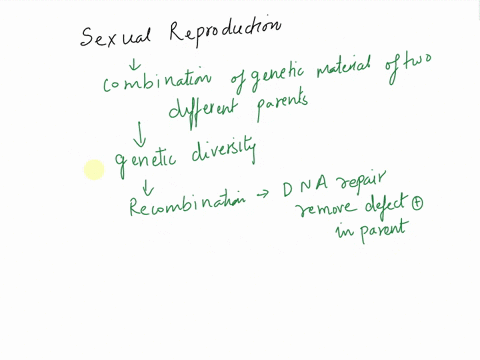 Sexual Reproduction
↓
combination of genetic material of two
different parents
↓
genetic diversity
↓
Recombination → DNA repair
remove defect ⊕
in parent